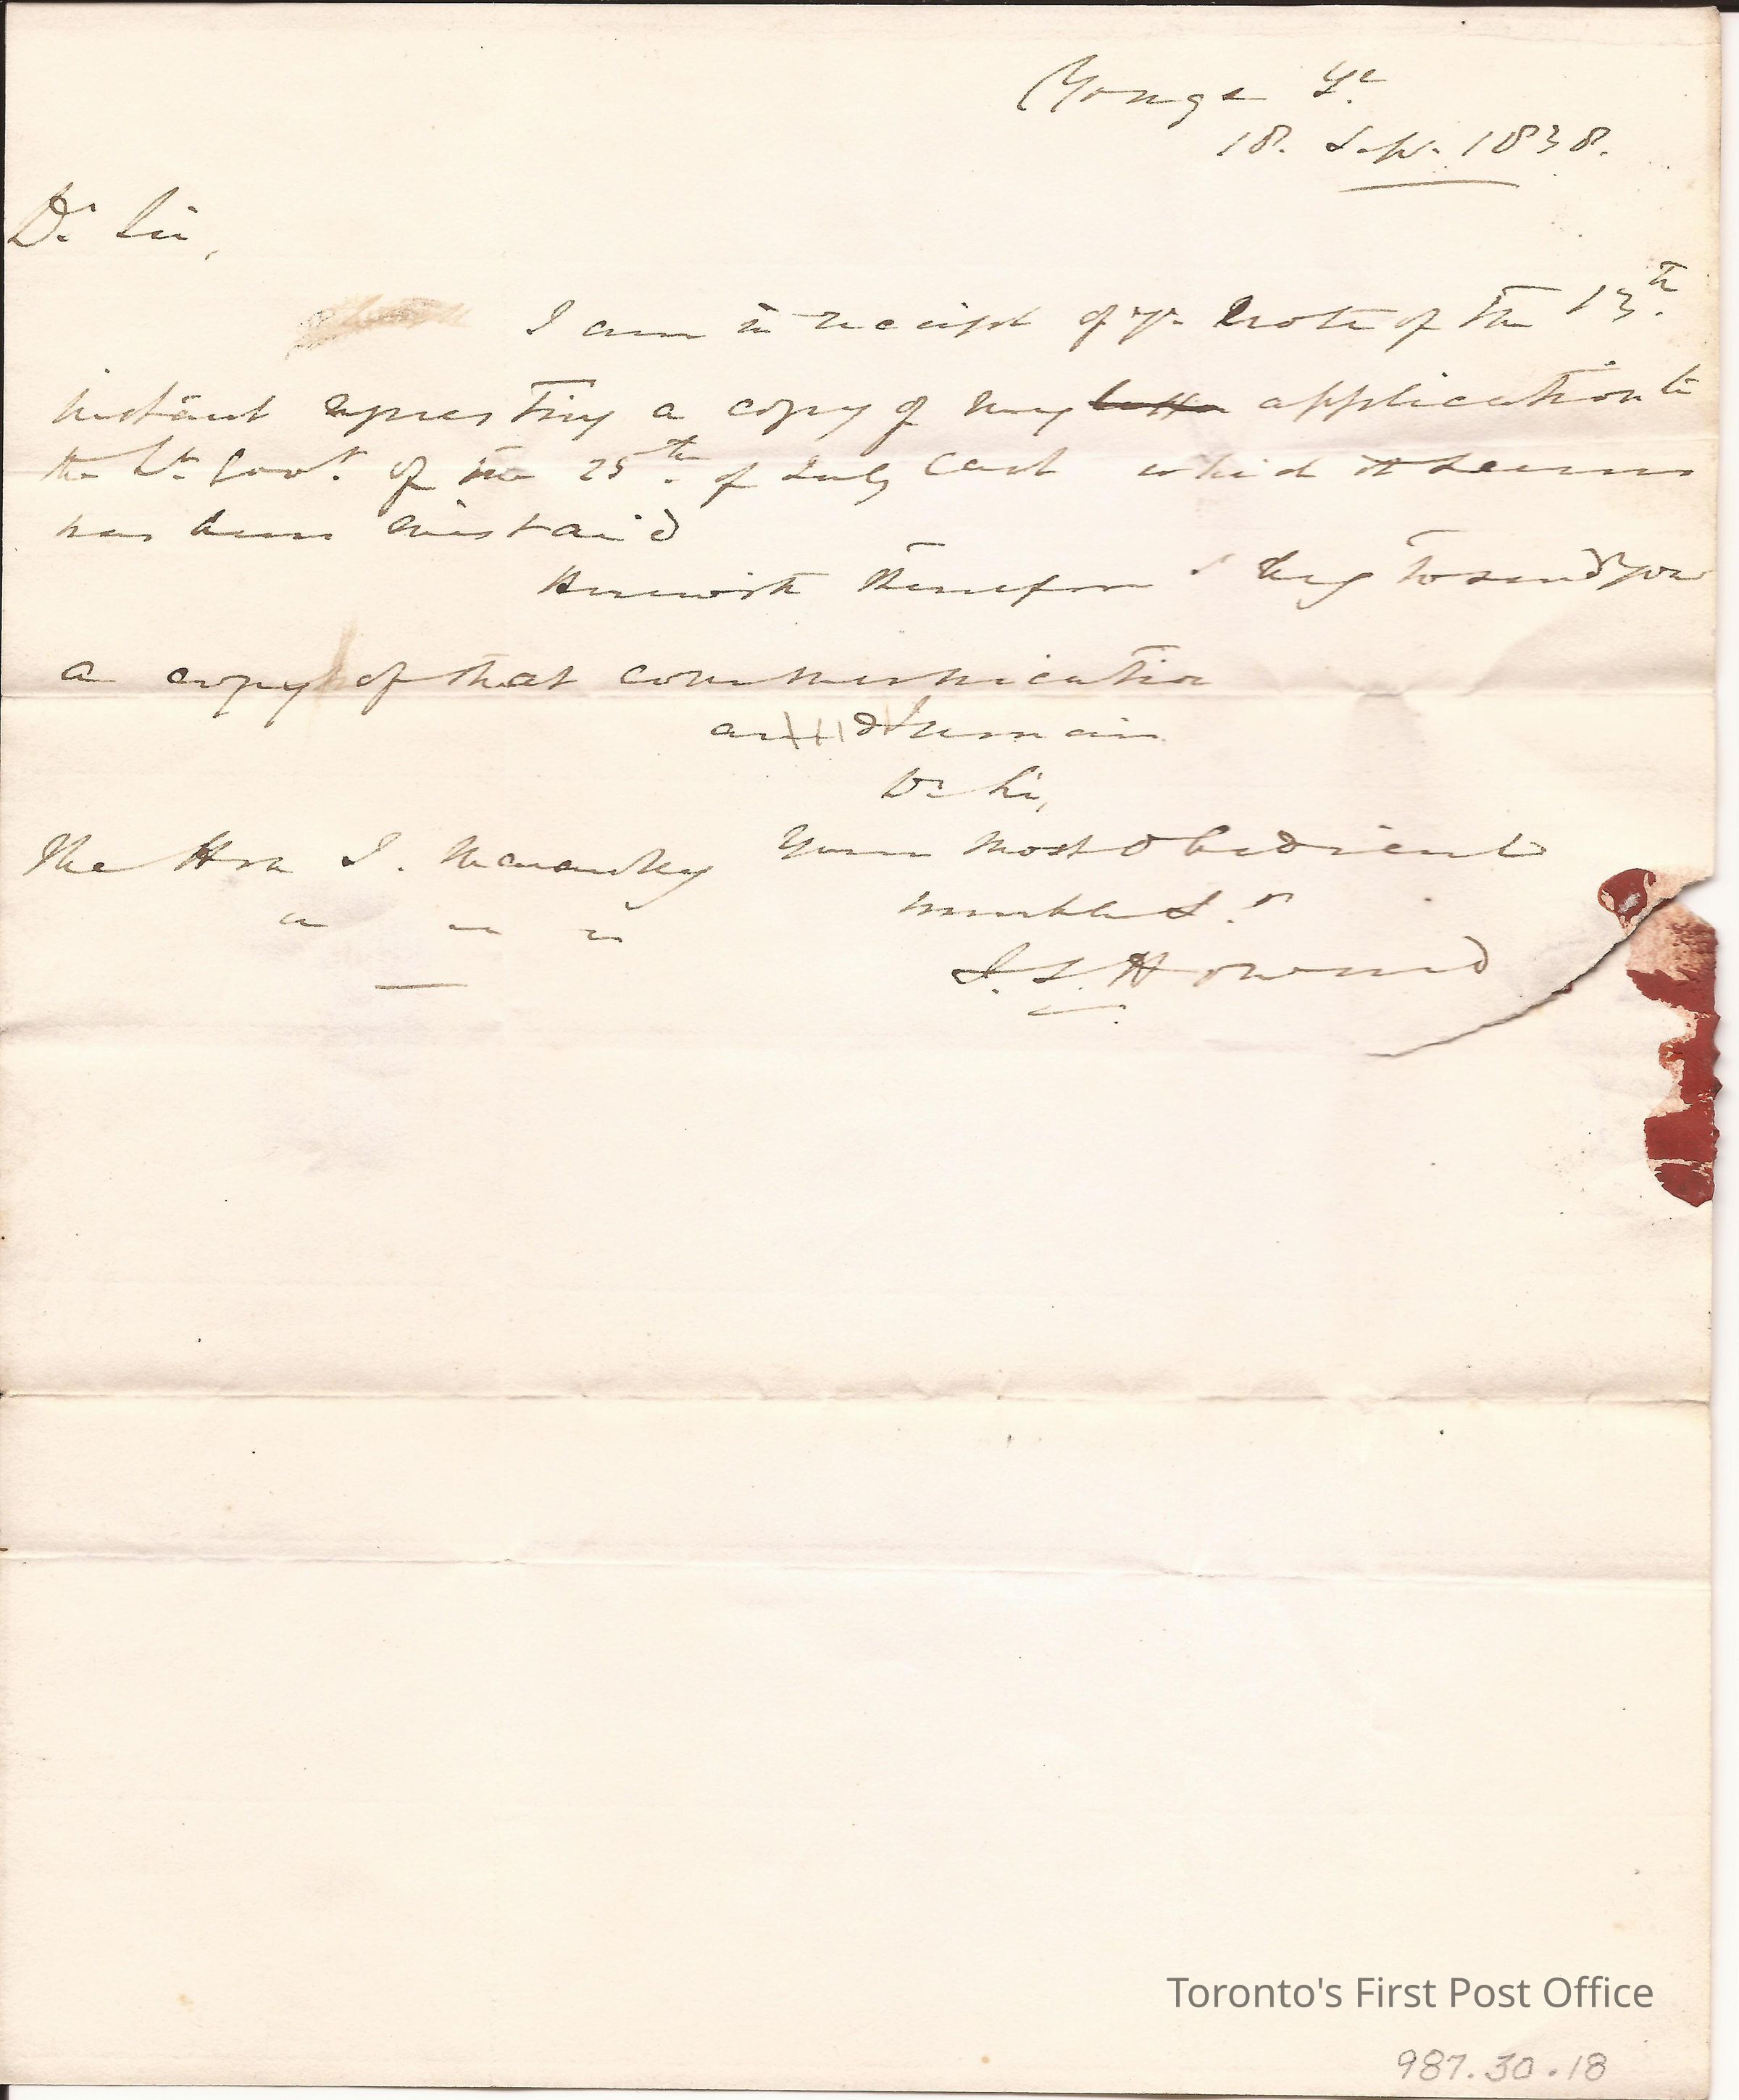 Yonge St
18. Sep. 1838.
Dr Sir,
I am in receipt of yr note of the 13th.
instant requesting a copy of my letter application to
the Lt. Govr. of the 25th. of July last which it seems
has been mislaid
Herewith therefore I beg to send you
a copy of that communication
and remain
Dr Sir,
The Hon J. Macaulay Your most obedient
humble St.
J. S. Howard
Toronto's First Post Office
987.30.18